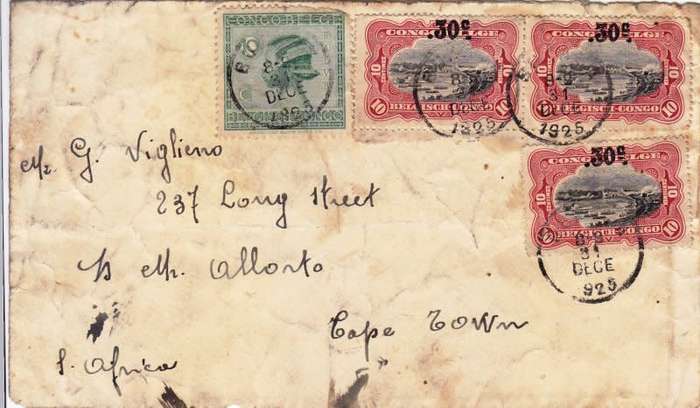 CONGO BELGE
10
BELGISCH CONGO
31
DECE
1925
30c
CONGO BELGE
10 10
BELGISCH-CONGO
31
DECE
1925
30c
CONGO BELGE
10 10
BELGISCH-CONGO
31
DECE
1925
30c
CONGO BELGE
10 10
BELGISCH-CONGO
31
DECE
1925
Mr. G. Viglieno
237 Long Street
Mr. Allorto
Cape Town
S. Africa